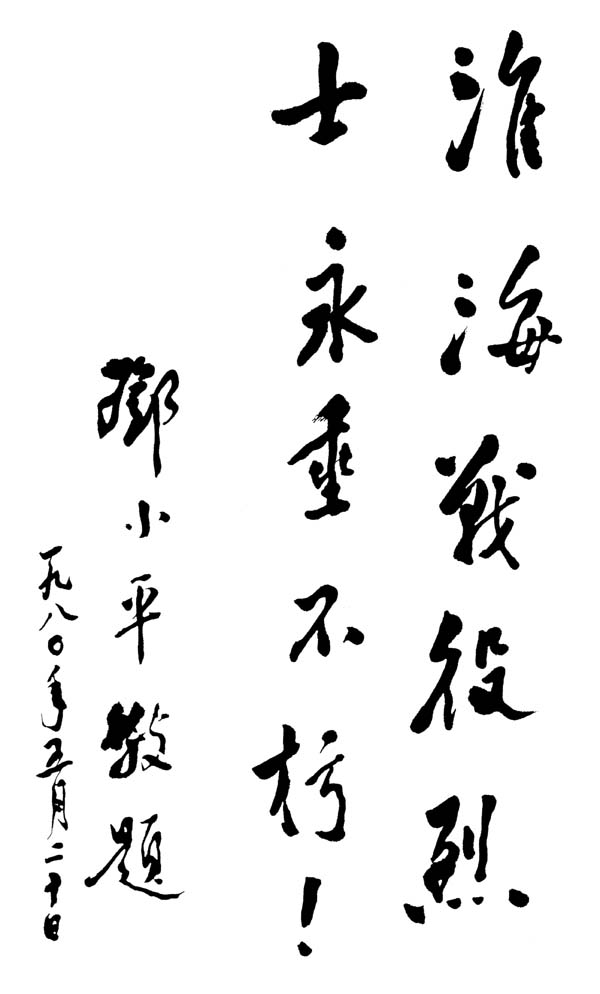 淮海戰役烈
士永垂不朽！
鄧小平敬題
一九八〇年五月二十日